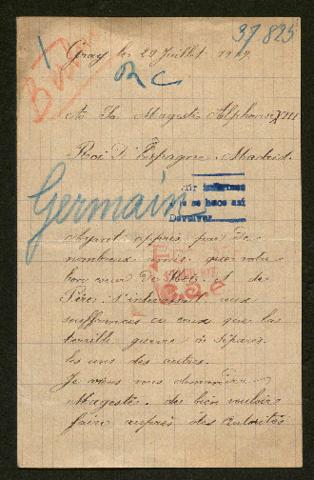 37825
Gray le 29 Juillet 1919
R C
A Sa Magesté Alphonse XIII
Roi D'Espagne. Madrid.
Germain
se hace así
Devolver
Ayant appris par de
nombreux amis que votre
bon cœur de Roi et de
Père s'intéressait aux
souffrances de ceux que la
terrible guerre à séparés
les uns des autres.
Je viens vous demander
Magesté, de bien vouloir
faire auprès des Autorités